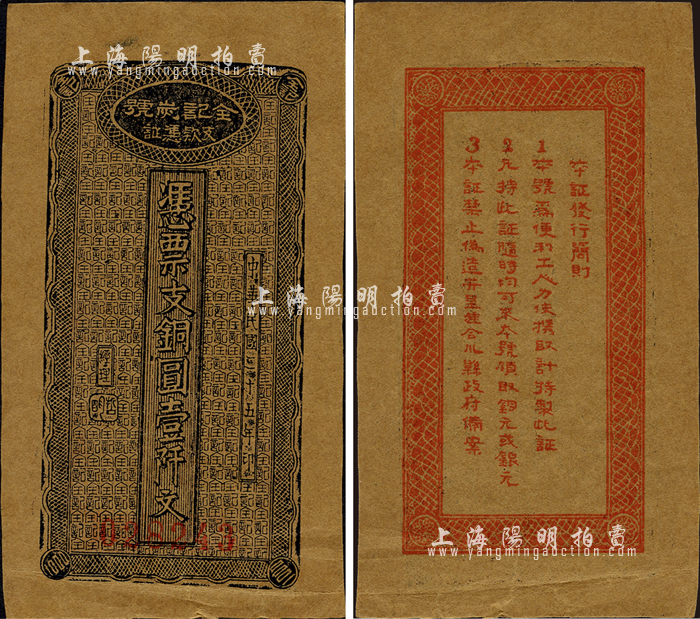 上海陽明拍賣
www.yangmingauction.com
全記炭號
支欵憑証
憑票支銅圓壹阡文
中華民國三十五年印
經理
上海陽明拍賣
www.yangmingauction.com
本証發行簡則
1 本號為便利工人力伕攜取計特製此証
2 凡持此証隨時均可來本號領取銅元或銀元
3 本証禁止偽造并呈建合川縣政府備案
上海陽明拍賣
www.yangmingauction.com
上海陽明拍賣
www.yangmingauction.com